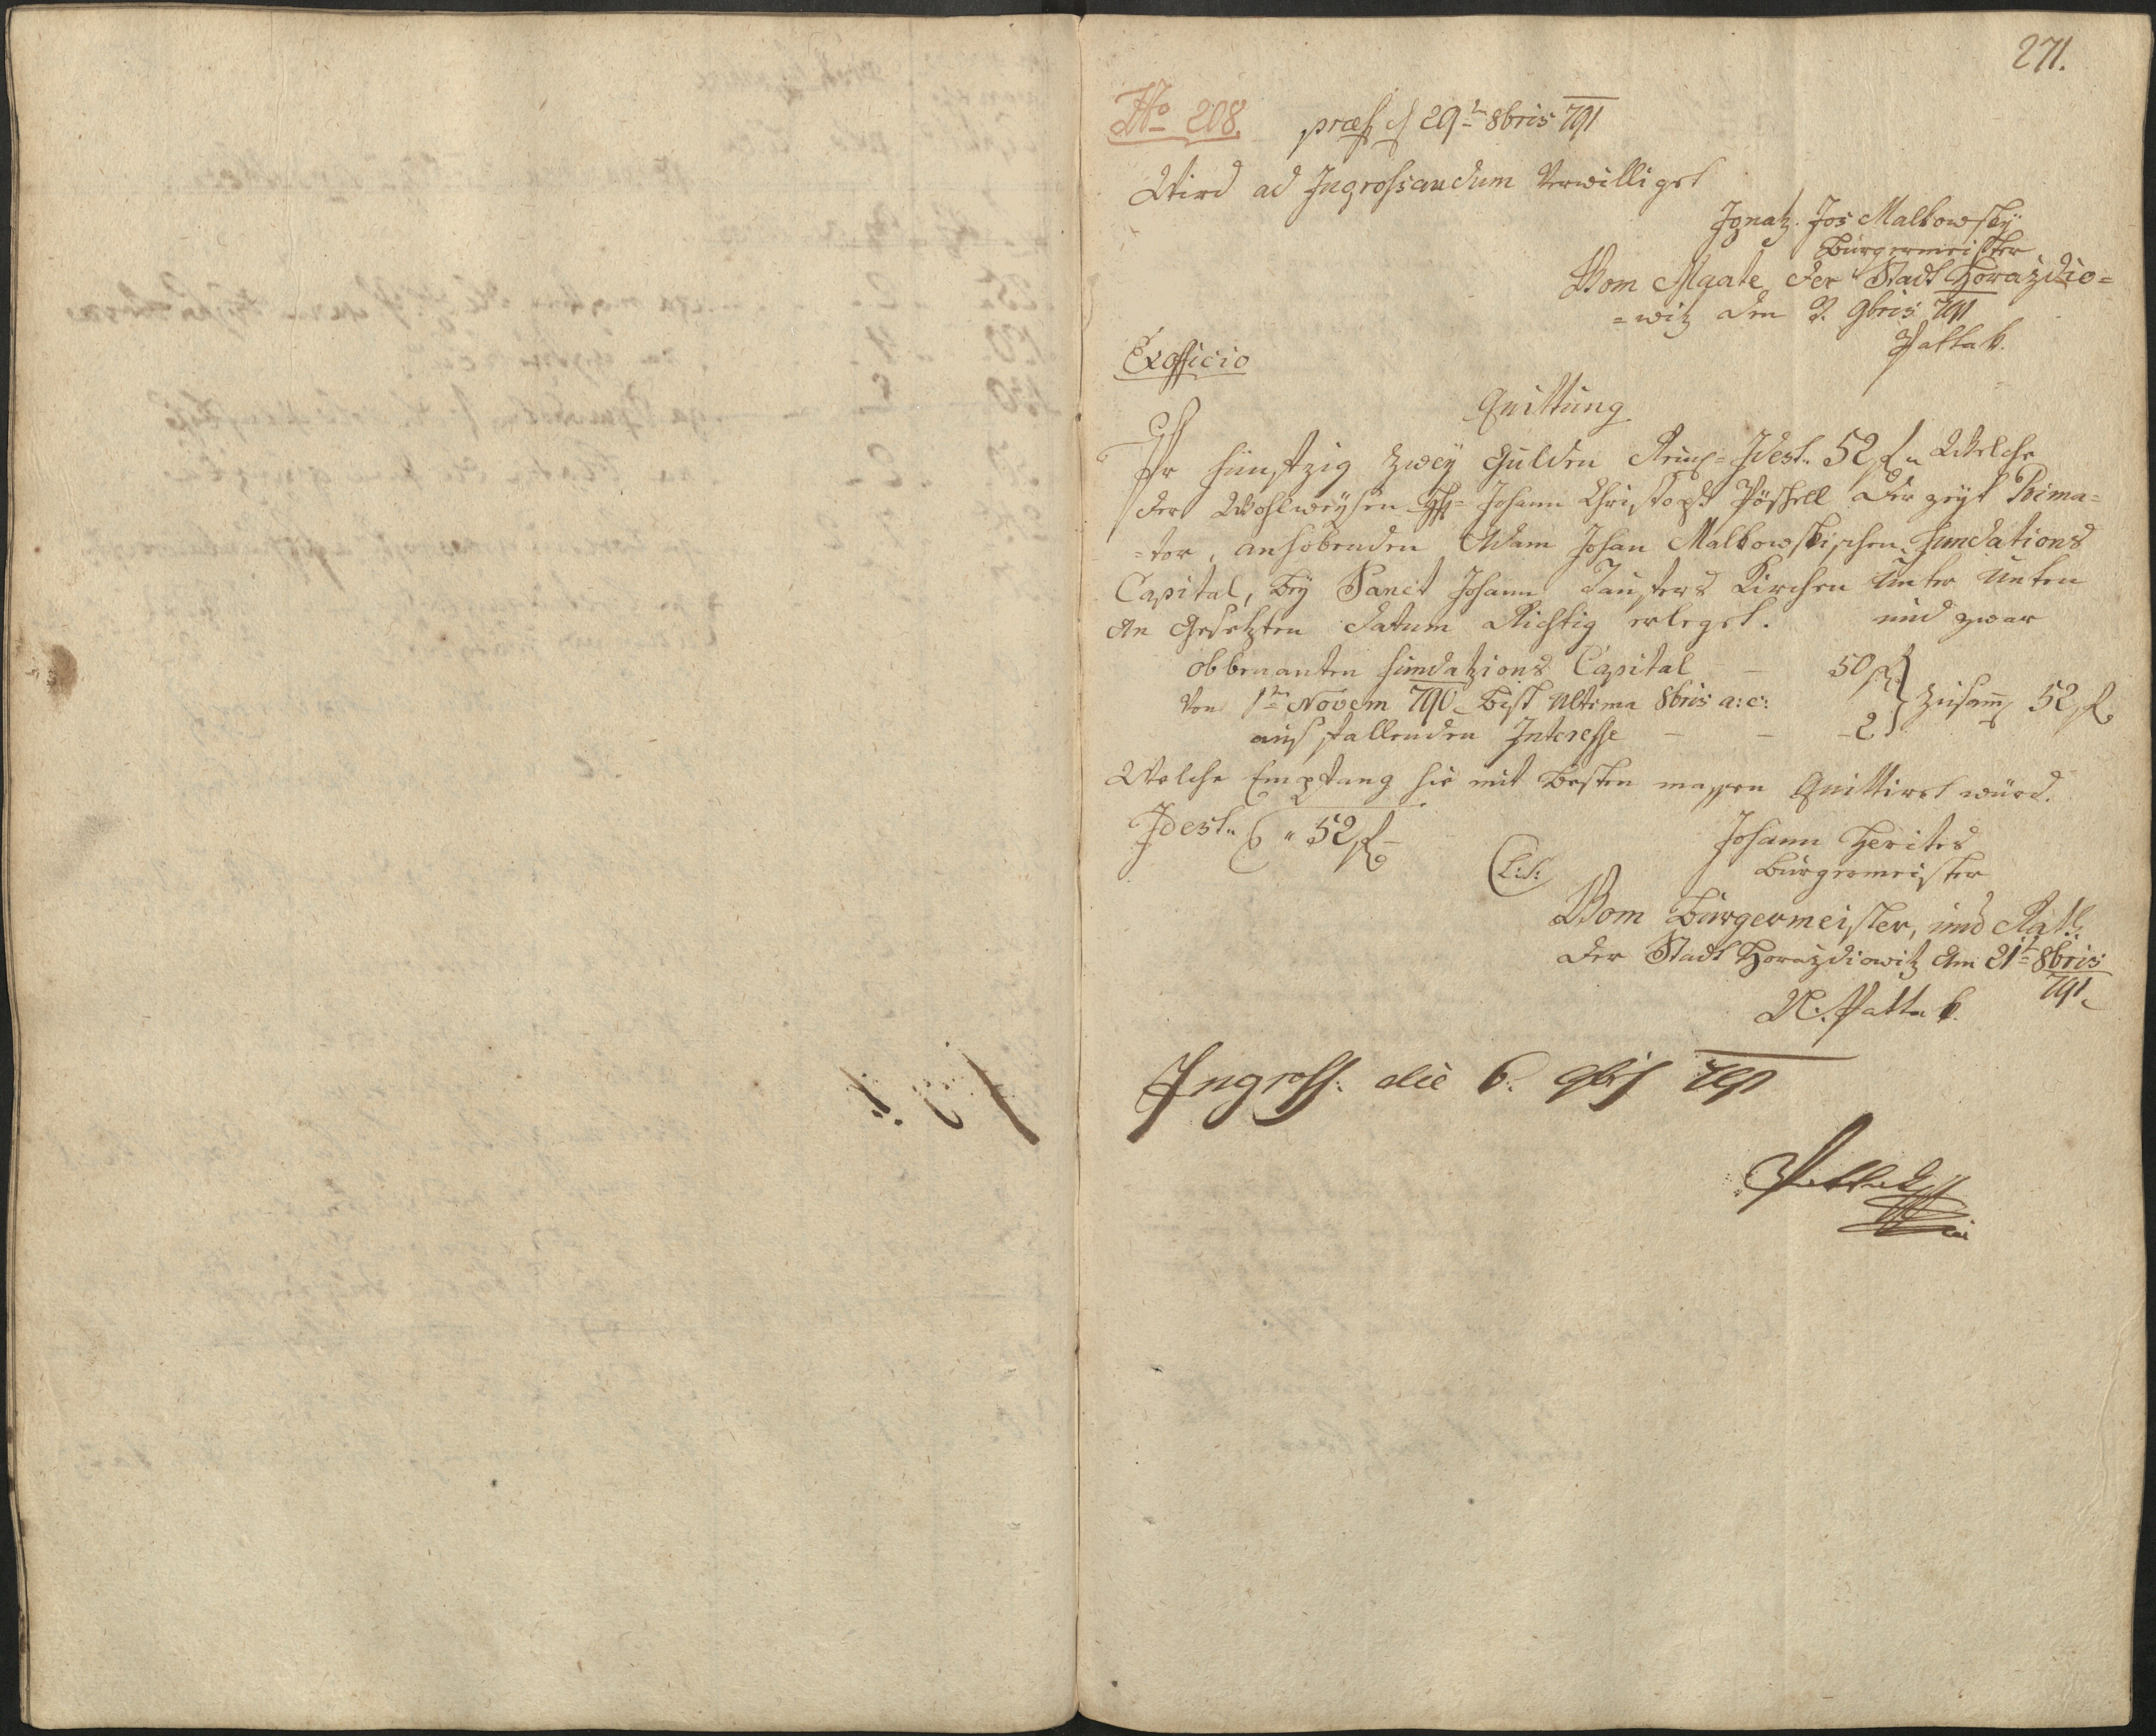 271.
No 208. præs d 29t 8bris 791
Wird ad Ingrossandum Verwilliget
Ignatz Jos Malkowsky
Burgermeister
Vom Mgate der Stadt Horazdio=
=witz den 2. 9bris 791
Exofficio
Quittung
Pr fünfzig zwey Gulden Reinß= Idest. 52 f. Welche
der Wohlweysen H= Johann Christoph Pöschell der zeyt Prima=
=tor, anhobenden Adam Johan Malkowskischen Fundations
Capital, bey Sanct Johann Taufers Kirchen Unter Unten
An Gesetzten datum Richtig erleget. und zwar
obbenanten fundazions Capital — 50 f
Von 1ten Novem 790 bist Ultima 8bris a: c: zusam̄ 52 f
ausfallenden Interesse — — 2
Welche Empfang hie mit besten massen Quittiret würd.
Idest. " 52 f
L: S: Johann Herites
Burgermeister
Vom Bürgermeister, und Rath
der Stadt Horazdiowitz Am 21t 8bris
791
Ingross: die 6. 9bris 791